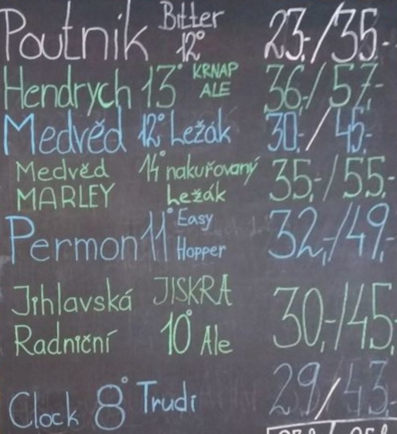 Poutník Bitter 12° 23,-/35,-
Hendrych 13° KRNAP ALE 36,-/57,-
Medvěd 12° Ležák 30,-/45,-
Medvěd MARLEY 14° nakuřovaný Ležák 35,-/55,-
Permon 11° Easy Hopper 32,-/49,-
Jihlavská JISKRA
Radniční 10° Ale 30,-/45,-
Clock 8° Trudi 29/43,-